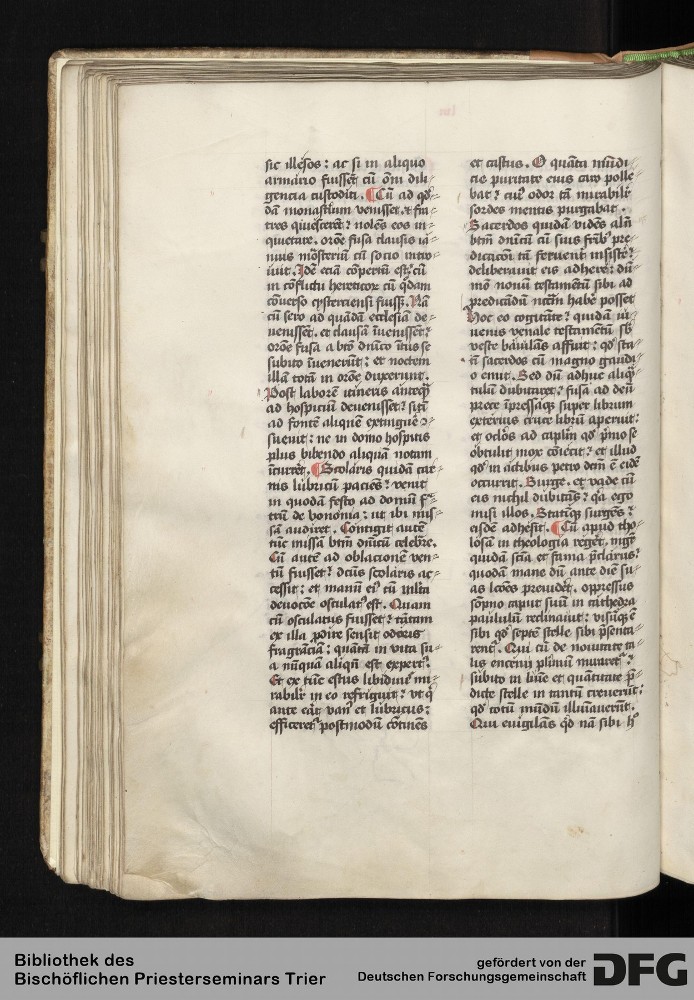 sic illesos : ac si in aliquo
armario fuissēt cū ōni dili
gencia custoditi . Cū ad qͥ
dā monastīum venisset . ⁊ fra
tres quiescerēt ⁊ nolēs eos in
quietare . orōe fusa clausis ia
nuis mōsterīū cū socio intro
iuit . Idē eciā cōpertū est . cū
in cōflictu hereticoꝝ cū qͥdam
cōuerso cysterciensi fuissꝫ . Nā
cū sero ad quādā ecclesiā de
venissēt . et clausā īuenissēt ⁊
orōe fusa a btō dnīco ītus se
subito īuenerūt : et noctem
illā totā in orōe duxerunt .
Post laborē itineris anteqͣ
ad hospiciū devenisset ⁊ sitī
ad fontē aliquē extinguē ꝯ
sueuit : ne in domo hospitis
plus bibendo aliquā notam
īcurrēt . Scolaris quidā car
nis lubricū paciēs ⁊ venit
in quodā festo ad domū fͣ
trū de bononia : ut ibi mis
sā audiret . Contigit autē
tūc missā btm̄ dnīcū celebrē .
Cū autē ad oblacionē ven
tū fuisset ⁊ dcūs scolaris ac
cessit : et manū eiꝰ cū mlta
deuocōe osculatꝰ est . Quam
cū osculatus fuisset ⁊ tātam
ex illa ꝓdire sensit odoris
fragrāciā : quātā in vita su
a nūquā aliqn̄ est expertꝰ .
Et ex tūc estus libidinis mi
rabilr̄ in eo refriguit ⁊ vt qͥ
ante erāt vanꝰ et lubricus :
efficeretͬ postmodū cōtinēs
et castus . O quāta mūdi
cie puritate eius caro polle
bat ⁊ cuiꝰ odor tā mirabilr̄
sordes mentis purgabat .
Sacerdos quidā vidēs aln̄
btm̄ dnīcū cū suis frībꝰ pre
dicacōi tā feruent insistē ⁊
deliberauit eis adherē : dū
mō nouū testamētū sibi ad
predicādū nctm̄ habē posset
Hoc eo cogitāte ⁊ quidā iu
uenis venale testamētū sb̄
veste baiulās affuit : qd̄ sta
tī sacerdos cū magno gaudi
o emit . Sed dū adhuc aliqͣ
tulū dubitaret ⁊ fusa ad deū
prece īpressaqꝫ super librum
exterius cruce librū aperuit :
et oclōs ad capīm qd̄ pͥmo se
obtulit mox cōiecit ⁊ et illud
qd̄ in actibus petro dcm̄ ē eidē
occurrit . Surge . et vade cū
eis nichil dubitās ⁊ qͣ ego
misi illos . Statīqꝫ surgēs ⁊
eisdē adhesit . Cū apud tho
losā in theologia regēt mgr̄
quidā scīa et fama p̄clarus ⁊
quodā mane dū ante diē su
as lcōes preuidēt . oppressus
sōpno caput suū in cathedra
paululū reclinauit : visūqꝫ ē
sibi qd̄ septē stelle sibi p̄senta
rent . Qui cū de nouitate ta
lis encenii plīmū miraretͬ ⁊
subito in lūie et quātitate p̄
dicte stelle in tantū creuerūt :
qd̄ totū mūdū illūīauerūt .
Qui euigilās qd̄ nā sibi hͦ
Bibliothek des
Bischöflichen Priesterseminars Trier
gefördert von der
Deutschen Forschungsgemeinschaft
DFG